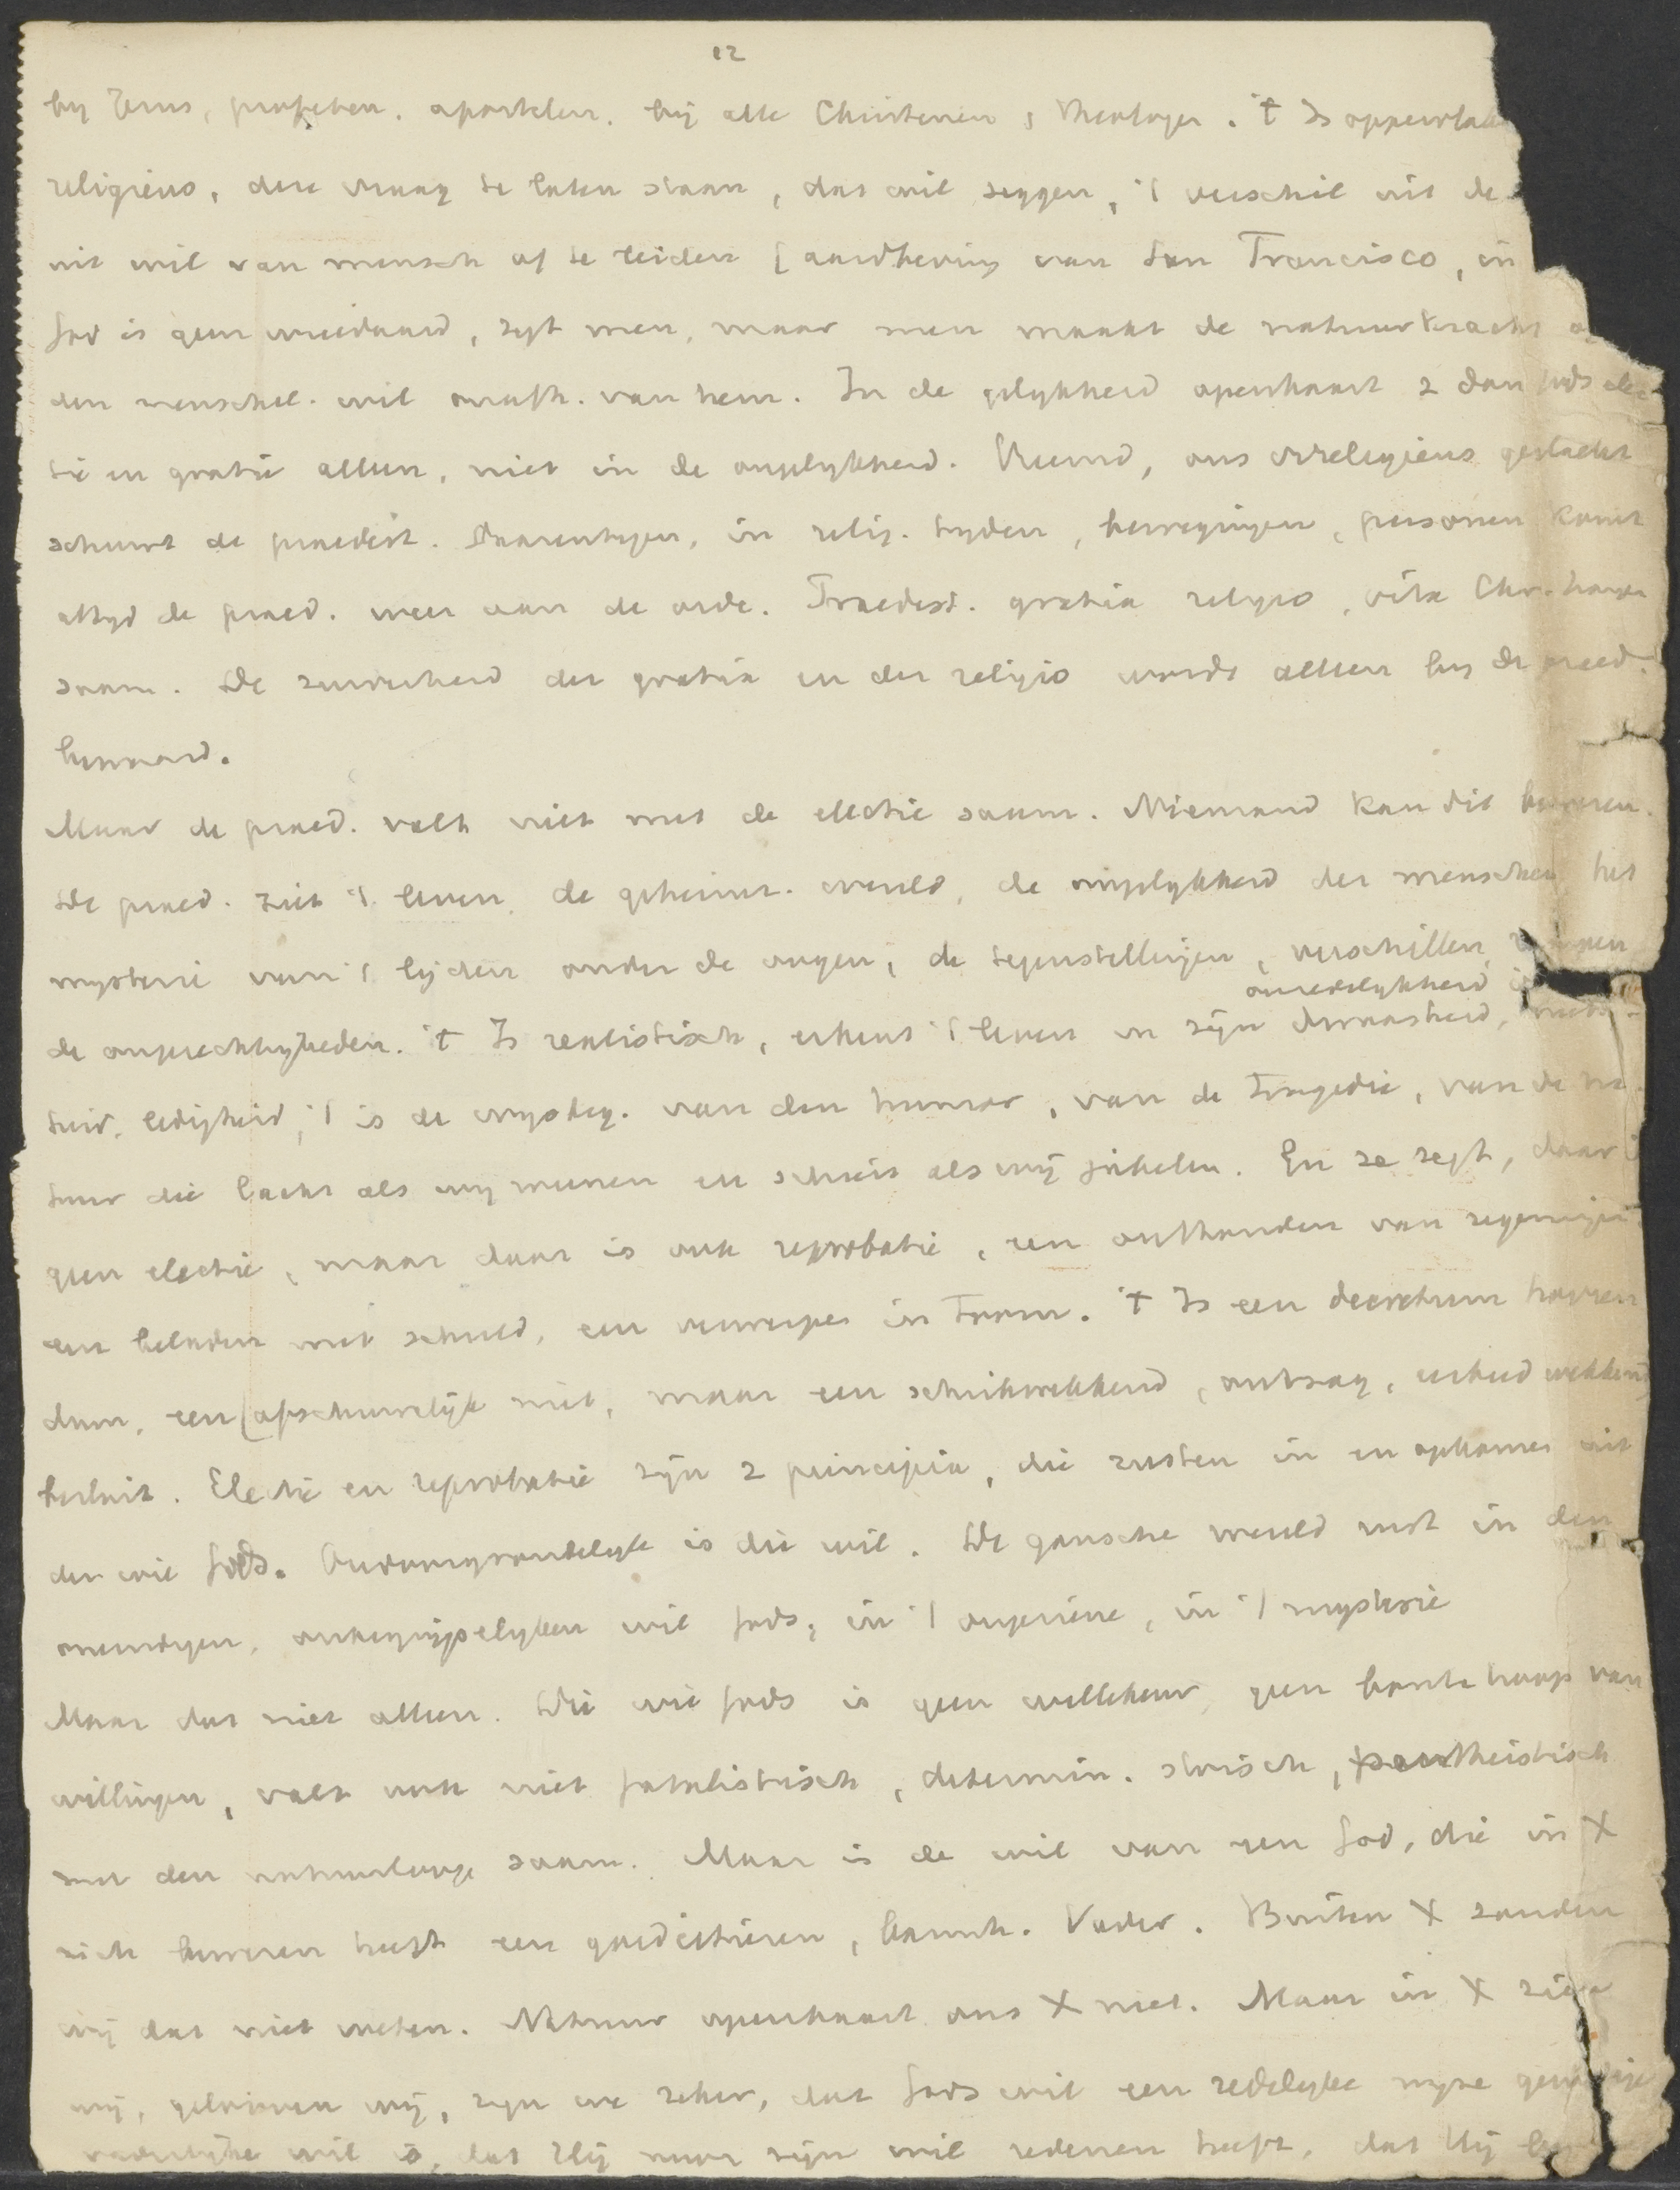 12
by Jezus, profeten, apostelen, bij alle Christenen, Theologen. 't Is oppervlak
religieus, deze vraag te laten staan, dat wil zeggen, 't verschil uit de
uit wil van mensch af te leiden [aardbeving van San Francisco, in
God is geen wreedaard, zegt men, maar men maakt de natuurkracht
den menschel. wil onafh. van hem. In de gelykheid openbaart z dan Gods elec-
tie en gratie alleen, niet in de ongelykheid. Vreemd, ons irreligieus geslacht
schuwt de praedest. Daarentegen, in relig. tyden, bewegingen, personen komt
altyd de praed. weer aan de orde. Praedest. gratia religio, vita Chr. hangen
saam. De zuiverheid der gratia en der religio wordt alleen by de praed.
bewaard.
Maar de praed. valt niet met de electie saam. Niemand kan dit beweren.
De praed. ziet 't leven, de geheimz. wereld, de ongelykheid der menschen, het
mysterie van 't lijden onder de oogen, de tegenstellingen, verschillen,
onredelykheid
de ongerechtigheden. 't Is realistisch, erkent 't leven in zijn dwaasheid,
ledigheid, 't is de van den humor, van de tragedie, van de na-
tuur die lacht als wy weenen en schreit als wij jubelen. En ze zegt, daar is
geen electie, maar daar is ook reprobatie, een onthouden van zegeningen
een beladen met schuld, een verwerpen in toorn. 't Is een decretum horren
dum, een [afschuwelijk niet, maar een schrikwekkend, ontzag, eerbied wekkend
besluit. Electie en reprobatie zijn 2 principia, die rusten in en opkomen uit
den wil Gods. Ondoorgrondelyk is die wil. De gansche wereld rust in den
eeuwigen, onbegrijpelyken wil Gods, in 't ongeziene, in 't mysterie
Maar dat niet alleen. Die wil Gods is geen willekeur, geen bonte hoop van
willingen, valt ook niet fatalistisch, determin. stoisch, pantheistisch
met den natuurloop saam. Maar is de wil van een God, die in X
zich bewezen heeft een goedertieren, barmh. Vader. Buiten X zouden
wij dat niet weten. Natuur openbaart ons X niet. Maar in X zien
wij, gelooven wij, zyn we zeker, dat Gods wil een redelyke wyze
vaderlijke wil is, dat Hij voor zijn wil redenen heeft, dat Hij